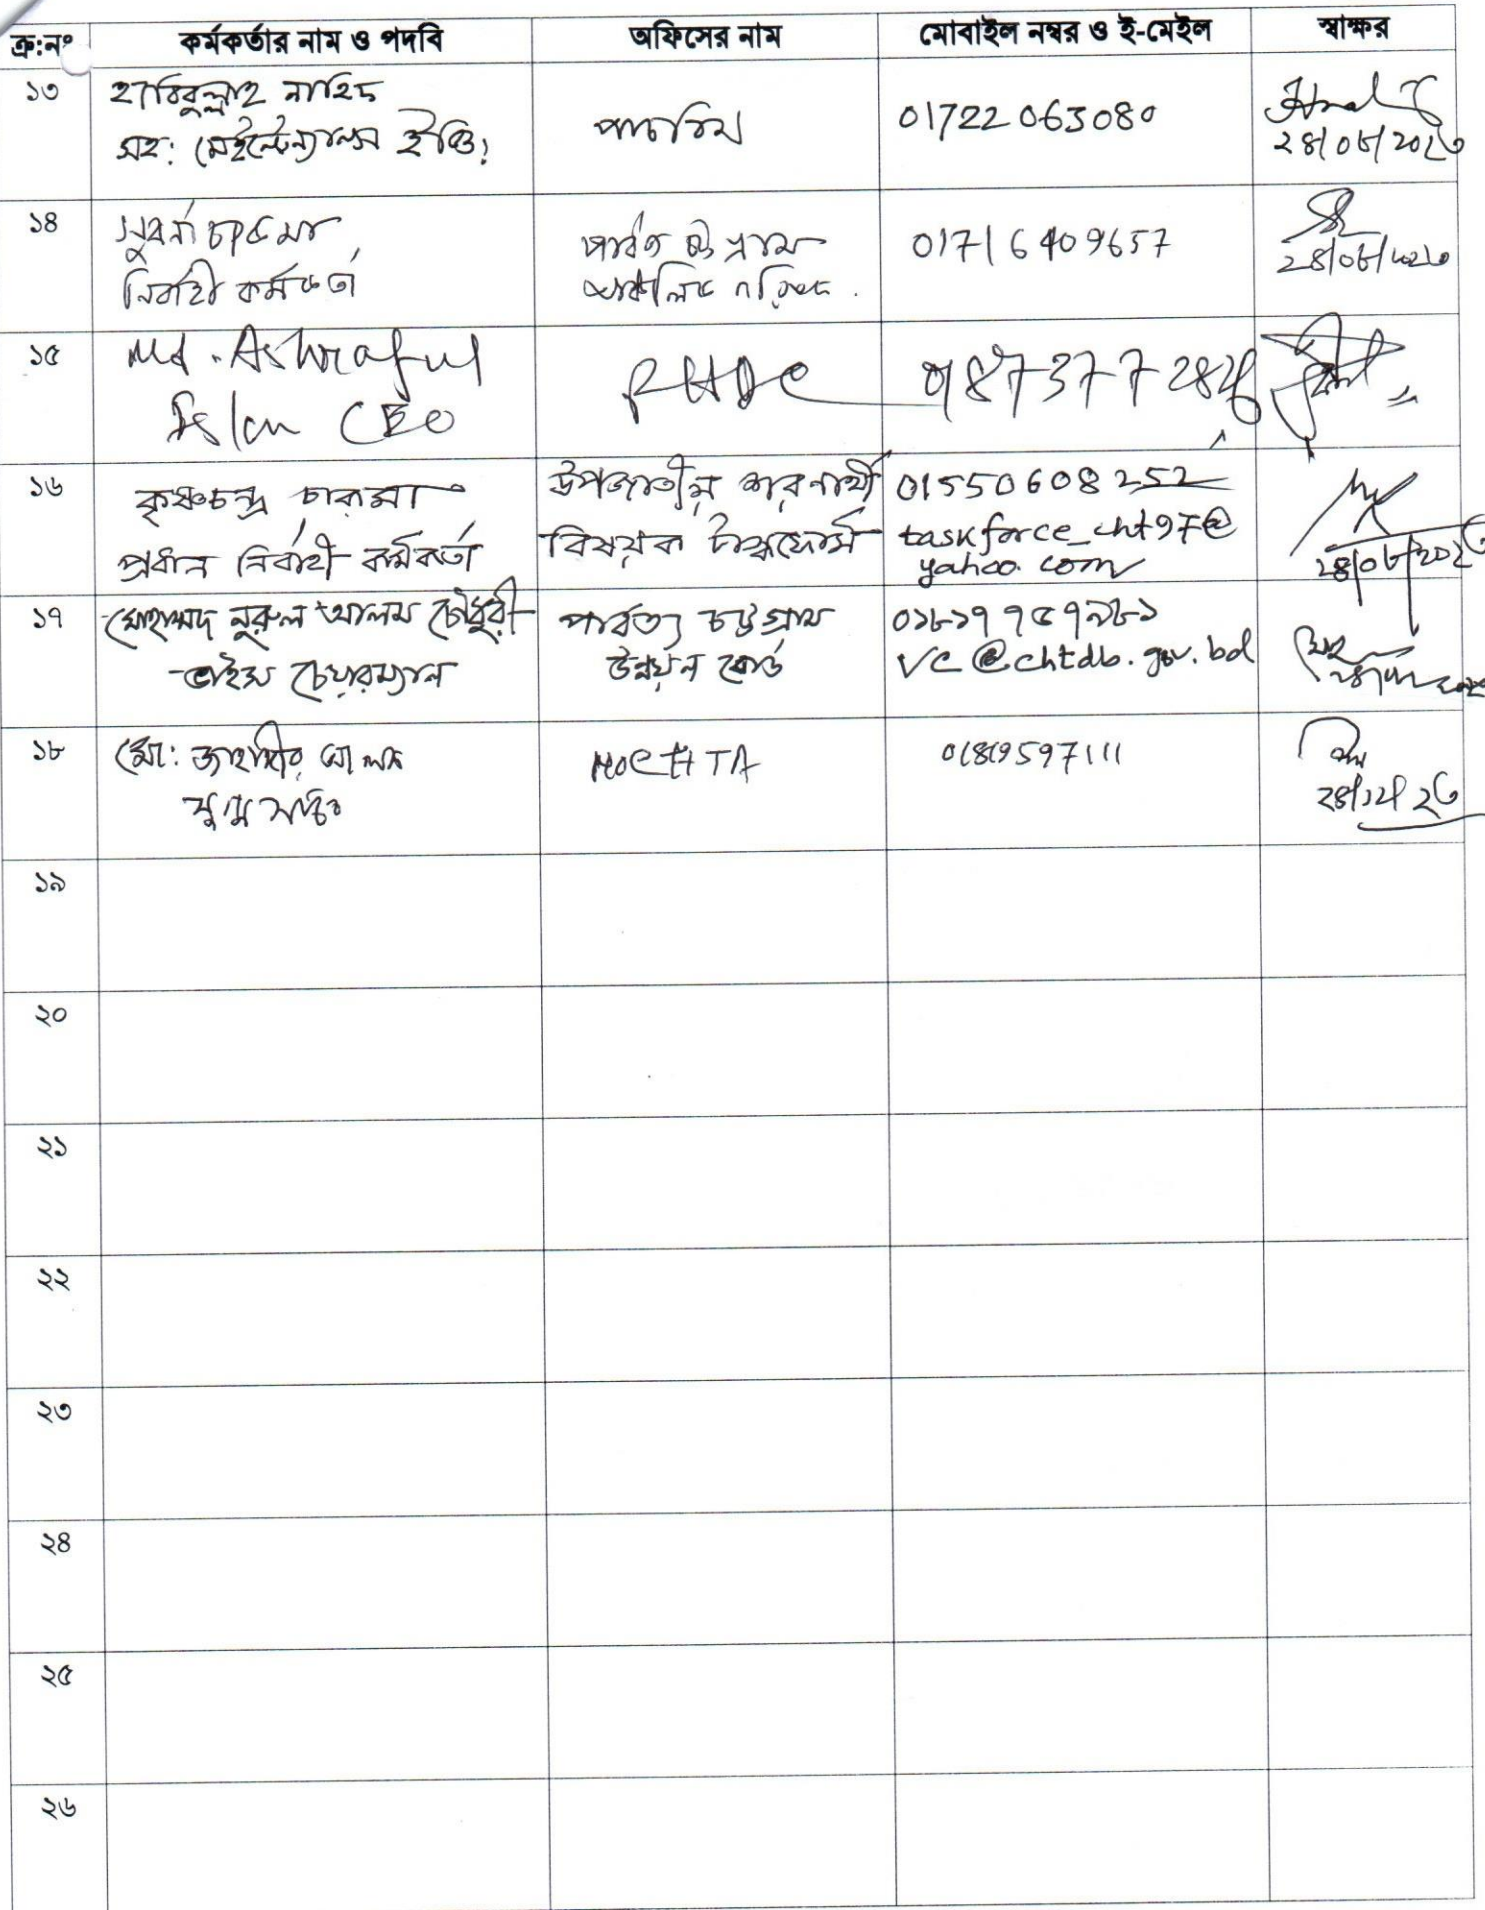 ক্র:নং কর্মকর্তার নাম ও পদবি অফিসের নাম মোবাইল নম্বর ও ই-মেইল স্বাক্ষর
১৩ হাবিবুল্লাহ নাহিদ
সহ: মেইন্টেন্যান্স ইঞ্জি:
01722063080
২৪/০৮/২০২৩
১৪ সুবর্না চাকমা
নির্বাহী কর্মকর্তা
পার্বত্য চট্টগ্রাম
আঞ্চলিক পরিষদ.
01716409657
১৫ Md. Ashraful
Islam CEO
১৬ কৃষ্ণচন্দ্র চাকমা
প্রধান নির্বাহী কর্মকর্তা
উপজাতীয় শরণার্থী
বিষয়ক টাস্কফোর্স
01550608252
taskforce_cht97@
yahoo.com
১৭ মোহাম্মদ নুরুল আলম চৌধুরী
ভাইস চেয়ারম্যান
পার্বত্য চট্টগ্রাম
উন্নয়ন বোর্ড
vc@chtdb.gov.bd
১৮ মো: জাহাঙ্গীর আলম
যুগ্ম সচিব
MOCHTA
১৯
২০
২১
২২
২৩
২৪
২৫
২৬